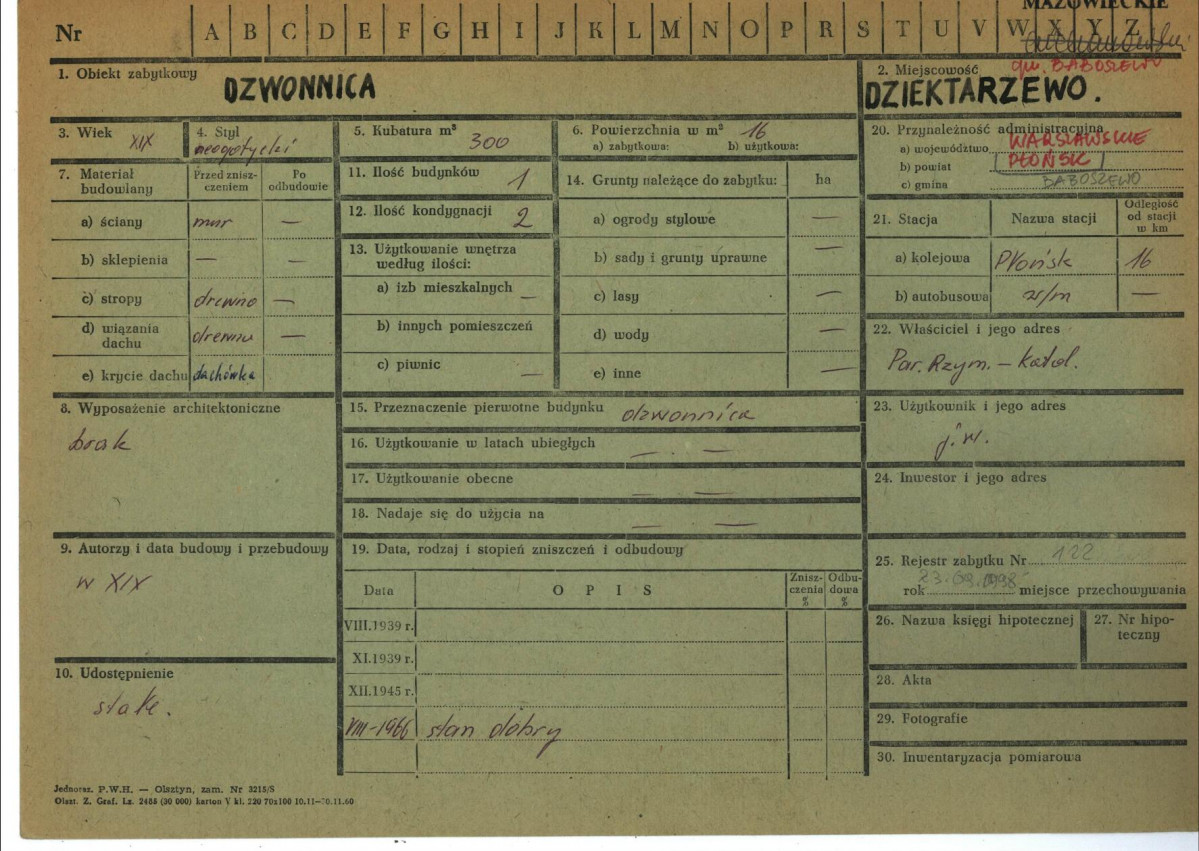 MAZOWIECKIE
Nr A B C D E F G H I J K L M N O P R S T U V W X Y Z
gm. BABOSZEWO
1. Obiekt zabytkowy
DZWONNICA
2. Miejscowość
DZIEKTARZEWO.
3. Wiek XIX
4. Styl neogotycki
5. Kubatura m³ 300
6. Powierzchnia w m² 16
a) zabytkowa: b) użytkowa:
7. Materiał budowlany
Przed zniszczeniem
Po odbudowie
a) ściany mur —
b) sklepienia — —
c) stropy drewno —
d) wiązania dachu drewno —
e) krycie dachu dachówka
8. Wyposażenie architektoniczne
brak
9. Autorzy i data budowy i przebudowy
w XIX
10. Udostępnienie
stałe.
11. Ilość budynków 1
12. Ilość kondygnacji 2
13. Użytkowanie wnętrza
według ilości:
a) izb mieszkalnych —
b) innych pomieszczeń
c) piwnic —
14. Grunty należące do zabytku: ha
a) ogrody stylowe —
b) sady i grunty uprawne —
c) lasy —
d) wody —
e) inne —
15. Przeznaczenie pierwotne budynku dzwonnica
16. Użytkowanie w latach ubiegłych — . —
17. Użytkowanie obecne — —
18. Nadaje się do użycia na — —
19. Data, rodzaj i stopień zniszczeń i odbudowy
Data OPIS Zniszczenia % Odbudowa %
VIII.1939 r.
XI.1939 r.
XII.1945 r.
VIII-1966 stan dobry
20. Przynależność administracyjna
a) województwo WARSZAWSKIE
b) powiat PŁOŃSK
c) gmina BABOSZEWO
21. Stacja Nazwa stacji Odległość od stacji w km
a) kolejowa Płońsk 16
b) autobusowa w/m —
22. Właściciel i jego adres
Par. Rzym. – Katol.
23. Użytkownik i jego adres
j.w.
24. Inwestor i jego adres
25. Rejestr zabytku Nr 122
rok 23.09. miejsce przechowywania
26. Nazwa księgi hipotecznej
27. Nr hipoteczny
28. Akta
29. Fotografie
30. Inwentaryzacja pomiarowa
Jednoraz. P.W.H. — Olsztyn, zam. Nr 3215/S
Olszt. Z. Graf. Lz. 2488 (30 000) karton V kl. 220 70x100 10.11—30.11.60